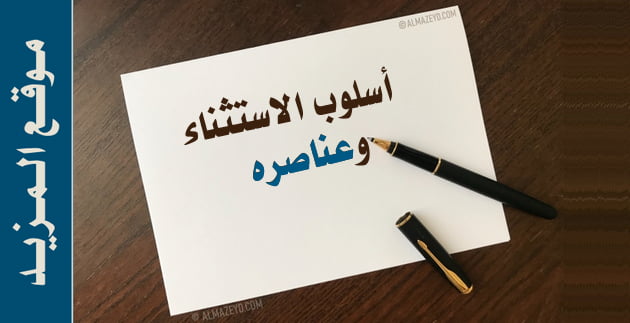 © ALMAZEYD.COM
أسلوب الاستثناء
وعناصره
© ALMAZEYD.COM
موقع المزيد